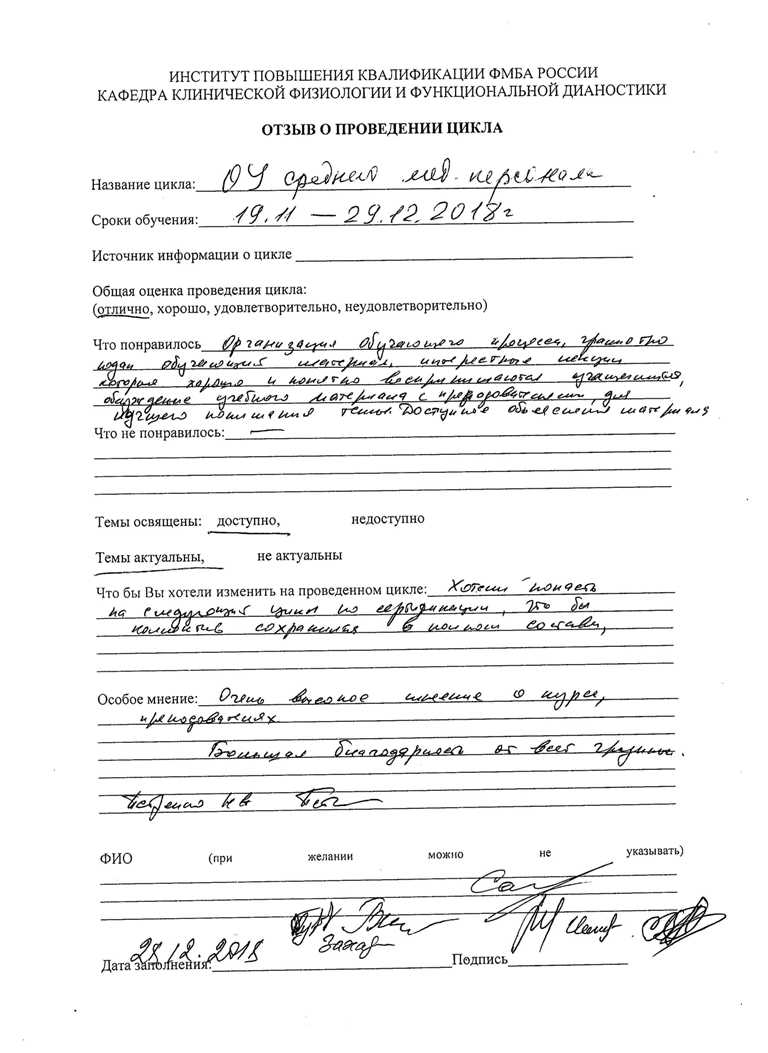 ИНСТИТУТ ПОВЫШЕНИЯ КВАЛИФИКАЦИИ ФМБА РОССИИ
КАФЕДРА КЛИНИЧЕСКОЙ ФИЗИОЛОГИИ И ФУНКЦИОНАЛЬНОЙ ДИАНОСТИКИ
ОТЗЫВ О ПРОВЕДЕНИИ ЦИКЛА
Название цикла: ОУ среднего мед. персонала
Сроки обучения: 19.11 — 29.12.2018г
Источник информации о цикле
Общая оценка проведения цикла:
(отлично, хорошо, удовлетворительно, неудовлетворительно)
Что понравилось Организация обучающего процесса, грамотно
подан обучающий материал, интересные лекции
которая хорошо и понятно воспринимаются учащимися,
обсуждение учебного материала с преподавателем, для
лучшего понимания темы. Доступное объяснения материала
Что не понравилось: —
Темы освящены: доступно, недоступно
Темы актуальны, не актуальны
Что бы Вы хотели изменить на проведенном цикле: Хотели попасть
на следующий цикл по сертификации, что бы
коллектив сохранился в полном составе,
Особое мнение: Очень высокое мнение о курсе,
преподованиях
Большая благодарность от всей группы.
ФИО (при желании можно не указывать)
Дата заполнения: 28.12.2018 Подпись